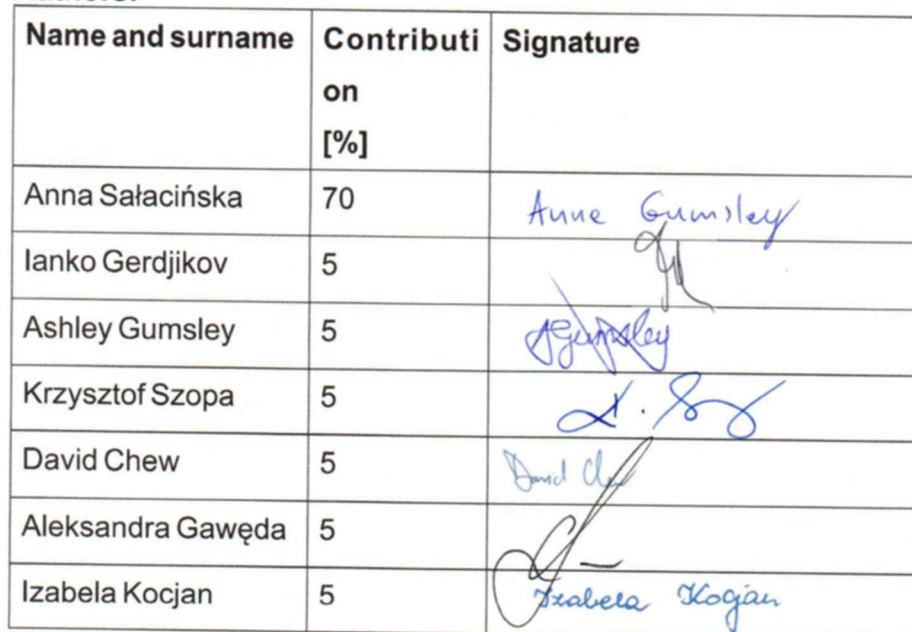 Name and surname Contributi Signature
on
[%]
Anna Sałacińska 70 Anna Gumsley
Ianko Gerdjikov 5
Ashley Gumsley 5 AGumsley
Krzysztof Szopa 5
David Chew 5 David Chew
Aleksandra Gawęda 5
Izabela Kocjan 5 Izabela Kocjan